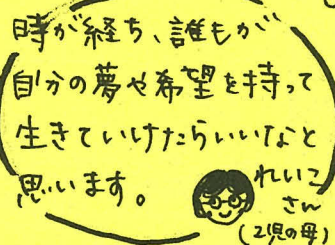 時が経ち、誰もが
自分の夢や希望を持って
生きていけたらいいなと
思います。
れいこ
さん
(2児の母)